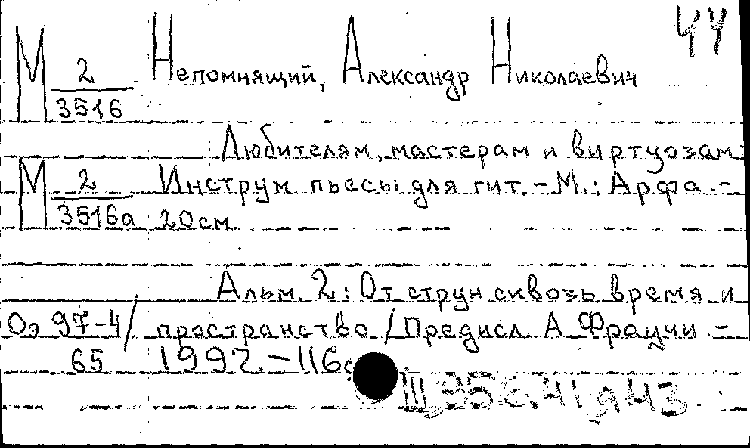 44
М 2/3516 Непомнящий, Александр Николаевич
Любителям, мастерам и виртуозам
М 2/3516а Инструм. пьесы для гит. - М.: Арфа. -
20 см
Альм. 2: От струн сквозь время и
Оэ 97-4/65 пространство / Предисл. А. Фраучи. -
1992. - 116с
III, 956.41, 943